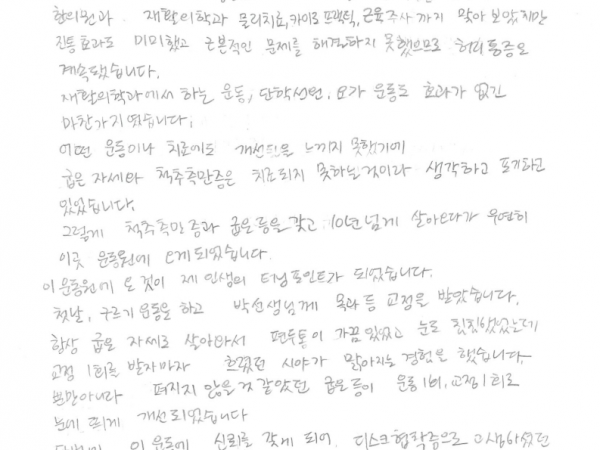 한의원과 재활의학과 물리치료, 카이로프랙틱, 근육주사까지 맞아 보았지만
진통효과도 미미했고 근본적인 문제를 해결하지 못했으므로 허리통증은
계속됐습니다.
재활의학과에서 하는 운동, 단학선원, 요가 운동도 효과가 없긴
마찬가지였습니다.
어떤 운동이나 치료에도 개선됨을 느끼지 못했기에
굽은 자세와 척추측만증은 치료되지 못하는것이라 생각하고 포기하고
있었습니다.
그렇게 척추측만증과 굽은등을 갖고 10년넘게 살아오다가 우연히
이곳 운동원에 오게되었습니다.
이 운동원에 온 것이 제 인생의 터닝포인트가 되었습니다.
첫날, 구르기운동을 하고 박선생님께 목과 등 교정을 받았습니다.
항상 굽은 자세로 살아와서 편두통이 가끔 있었고 눈도 침침했었는데
교정 1회를 받자마자 흐렸던 시야가 맑아지는 경험을 했습니다.
뿐만아니라 펴지지 않을것 같았던 굽은등이 운동1회, 교정1회로
눈에 띄게 개선되었습니다
이 운동에 신뢰를 갖게 되어, 디스크협착증으로 고생하셨던